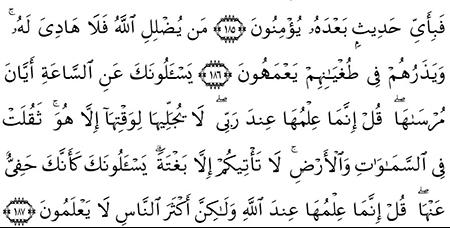 فَبِأَيِّ حَدِيثٍۭ بَعْدَهُۥ يُؤْمِنُونَ ١٨٥ مَن يُضْلِلِ ٱللَّهُ فَلَا هَادِىَ لَهُۥ ۚ
وَيَذَرُهُمْ فِى طُغْيَـٰنِهِمْ يَعْمَهُونَ ١٨٦ يَسْـَٔلُونَكَ عَنِ ٱلسَّاعَةِ أَيَّانَ
مُرْسَىٰهَا ۖ قُلْ إِنَّمَا عِلْمُهَا عِندَ رَبِّى ۖ لَا يُجَلِّيهَا لِوَقْتِهَآ إِلَّا هُوَ ۚ ثَقُلَتْ
فِى ٱلسَّمَـٰوَٰتِ وَٱلْأَرْضِ ۚ لَا تَأْتِيكُمْ إِلَّا بَغْتَةً ۗ يَسْـَٔلُونَكَ كَأَنَّكَ حَفِىٌّ
عَنْهَا ۖ قُلْ إِنَّمَا عِلْمُهَا عِندَ ٱللَّهِ وَلَـٰكِنَّ أَكْثَرَ ٱلنَّاسِ لَا يَعْلَمُونَ ١٨٧